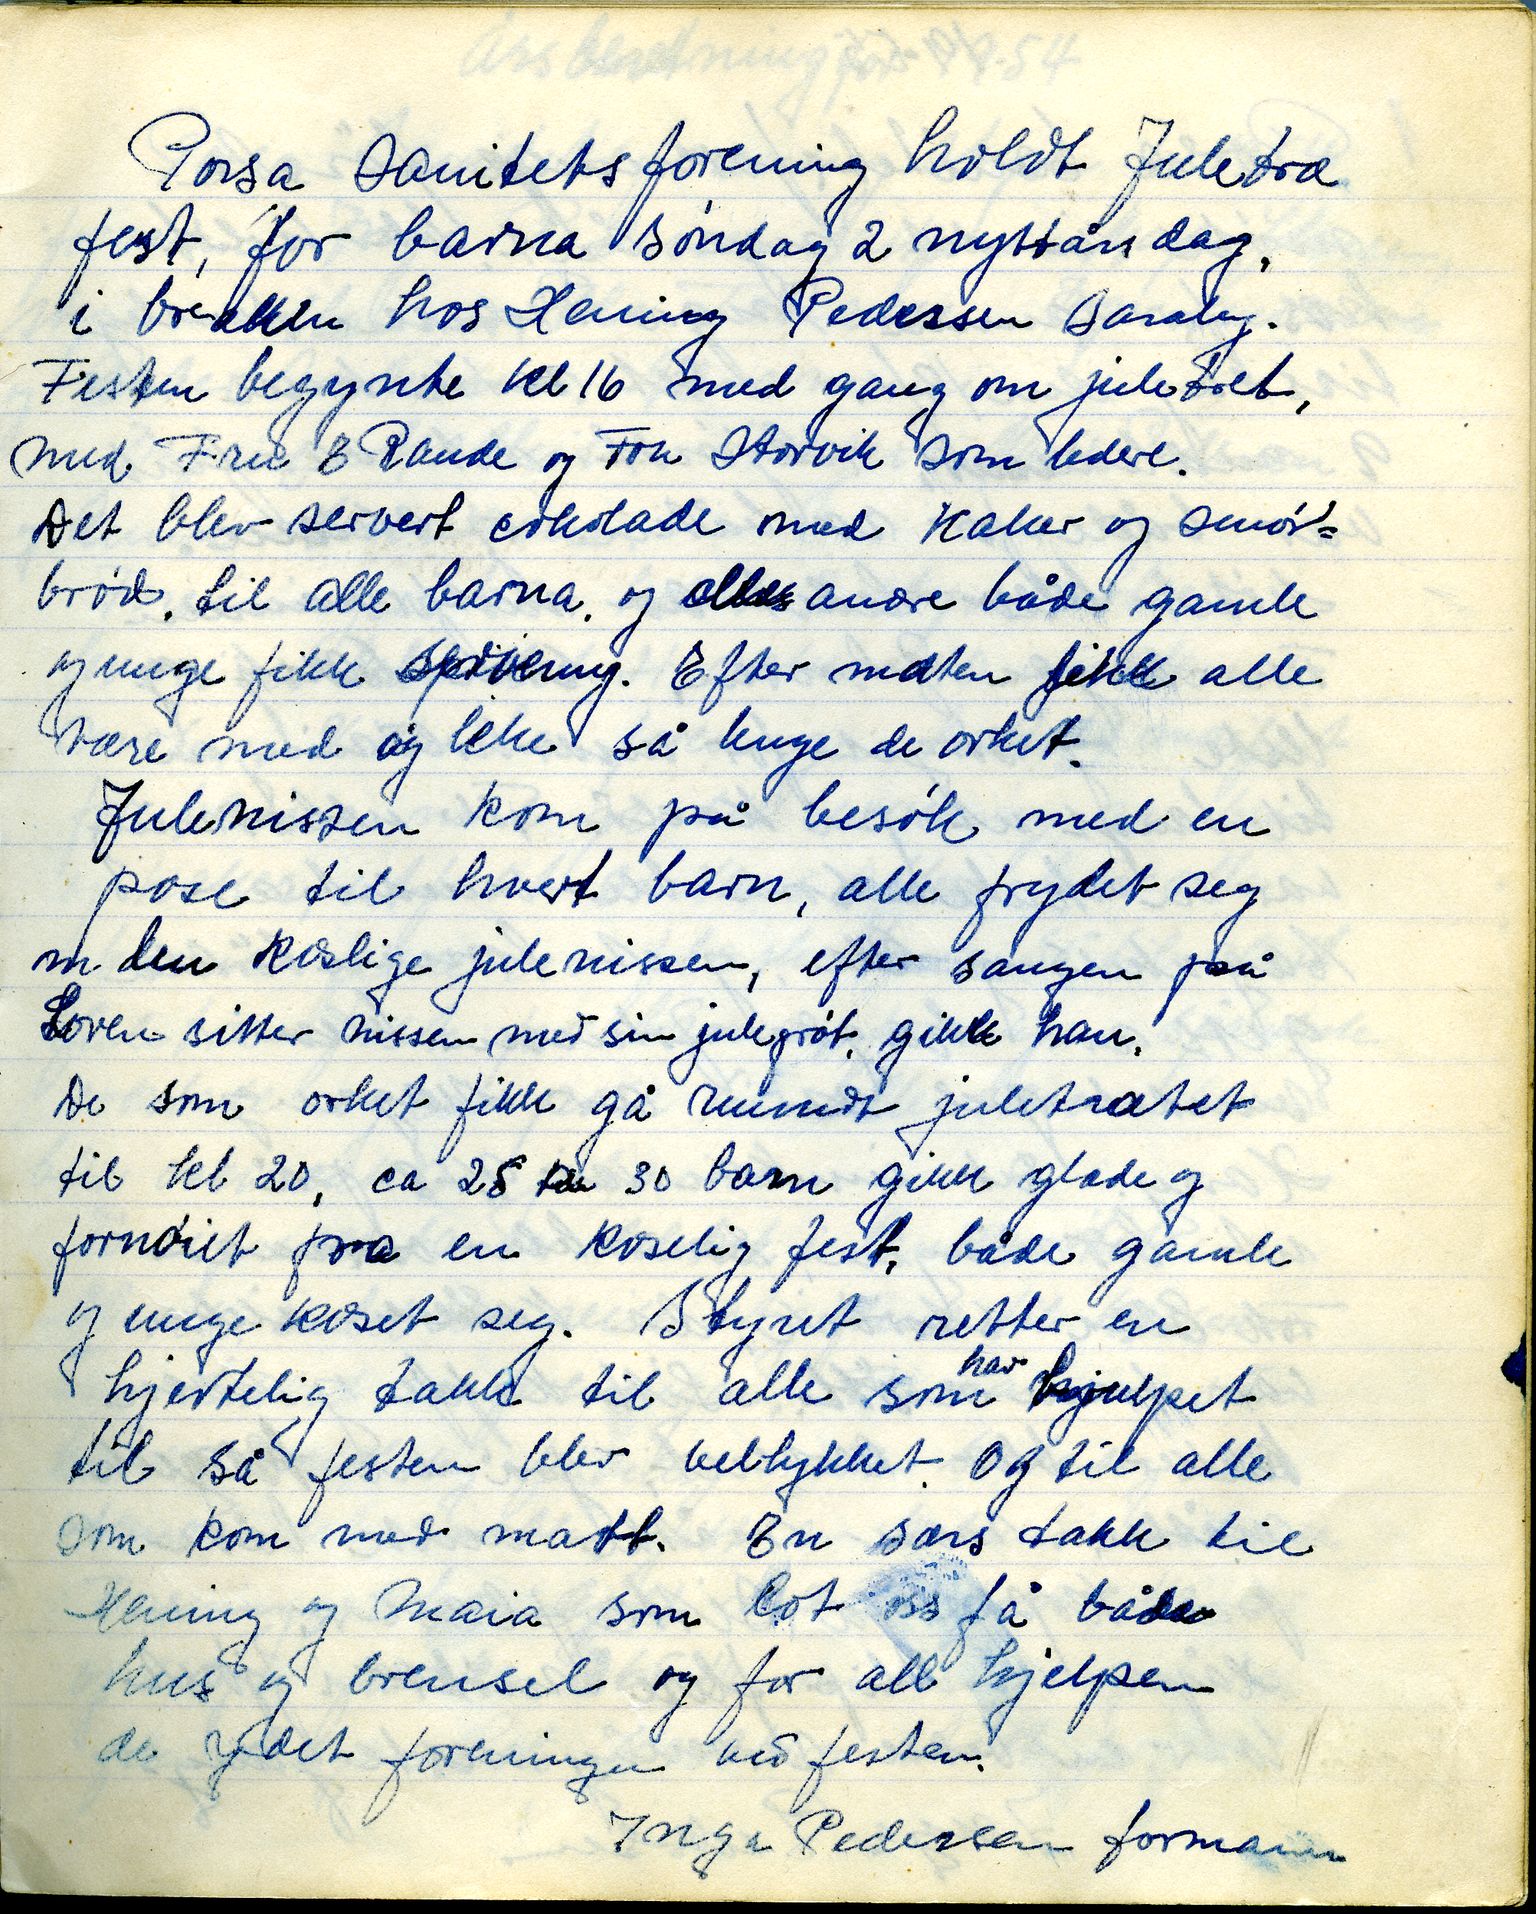 Porsa Sanitetsforening holdt Juletræ
fest, for barna søndag 2 nyttårsdag,
i brakken hos Hening Pedersen Saraby.
Festen begynte kl 16 med gang om juletret,
med Fru E Rande og Frk Storvik som ledere.
Det blev servert cokolade med kaker og smør=
brød, til alle barna, og andre både gamle
og unge fikk servering. Efter maten fikk alle
være med og leke så lenge de orket.
Julenissen kom på besøk med en
pose til hvert barn, alle frydet seg
m den koslige julenissen, efter sangen på
Loven sitter nissen med sin julegrøt, gikk han.
De som orket fikk gå rundt juletrætet
til kl 20, ca 25 til 30 barn gikk glade og
fornøiet fra en koselig fest, både gamle
og unge koset seg. Styret retter en
hjertelig takk til alle som har hjulpet
til så festen blev vellykket. Og til alle
som kom med matt. En særs takk til
Hening og Maia som lot oss få både
hus og brensel og for all hjelpen
de ydet foreningen ved festen.
Inga Pedersen formann